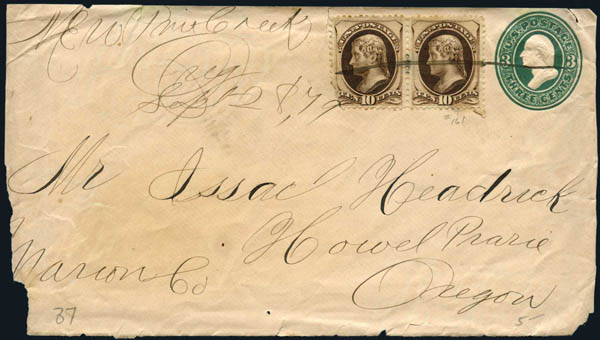 New Pine Creek
Ogn
Sept 2
U.S. POSTAGE
10 10
#161
U.S. POSTAGE
3 3
THREE CENTS
Mr Issac Headrick
Howel Prarie
Marion Co
Oregon
37
5